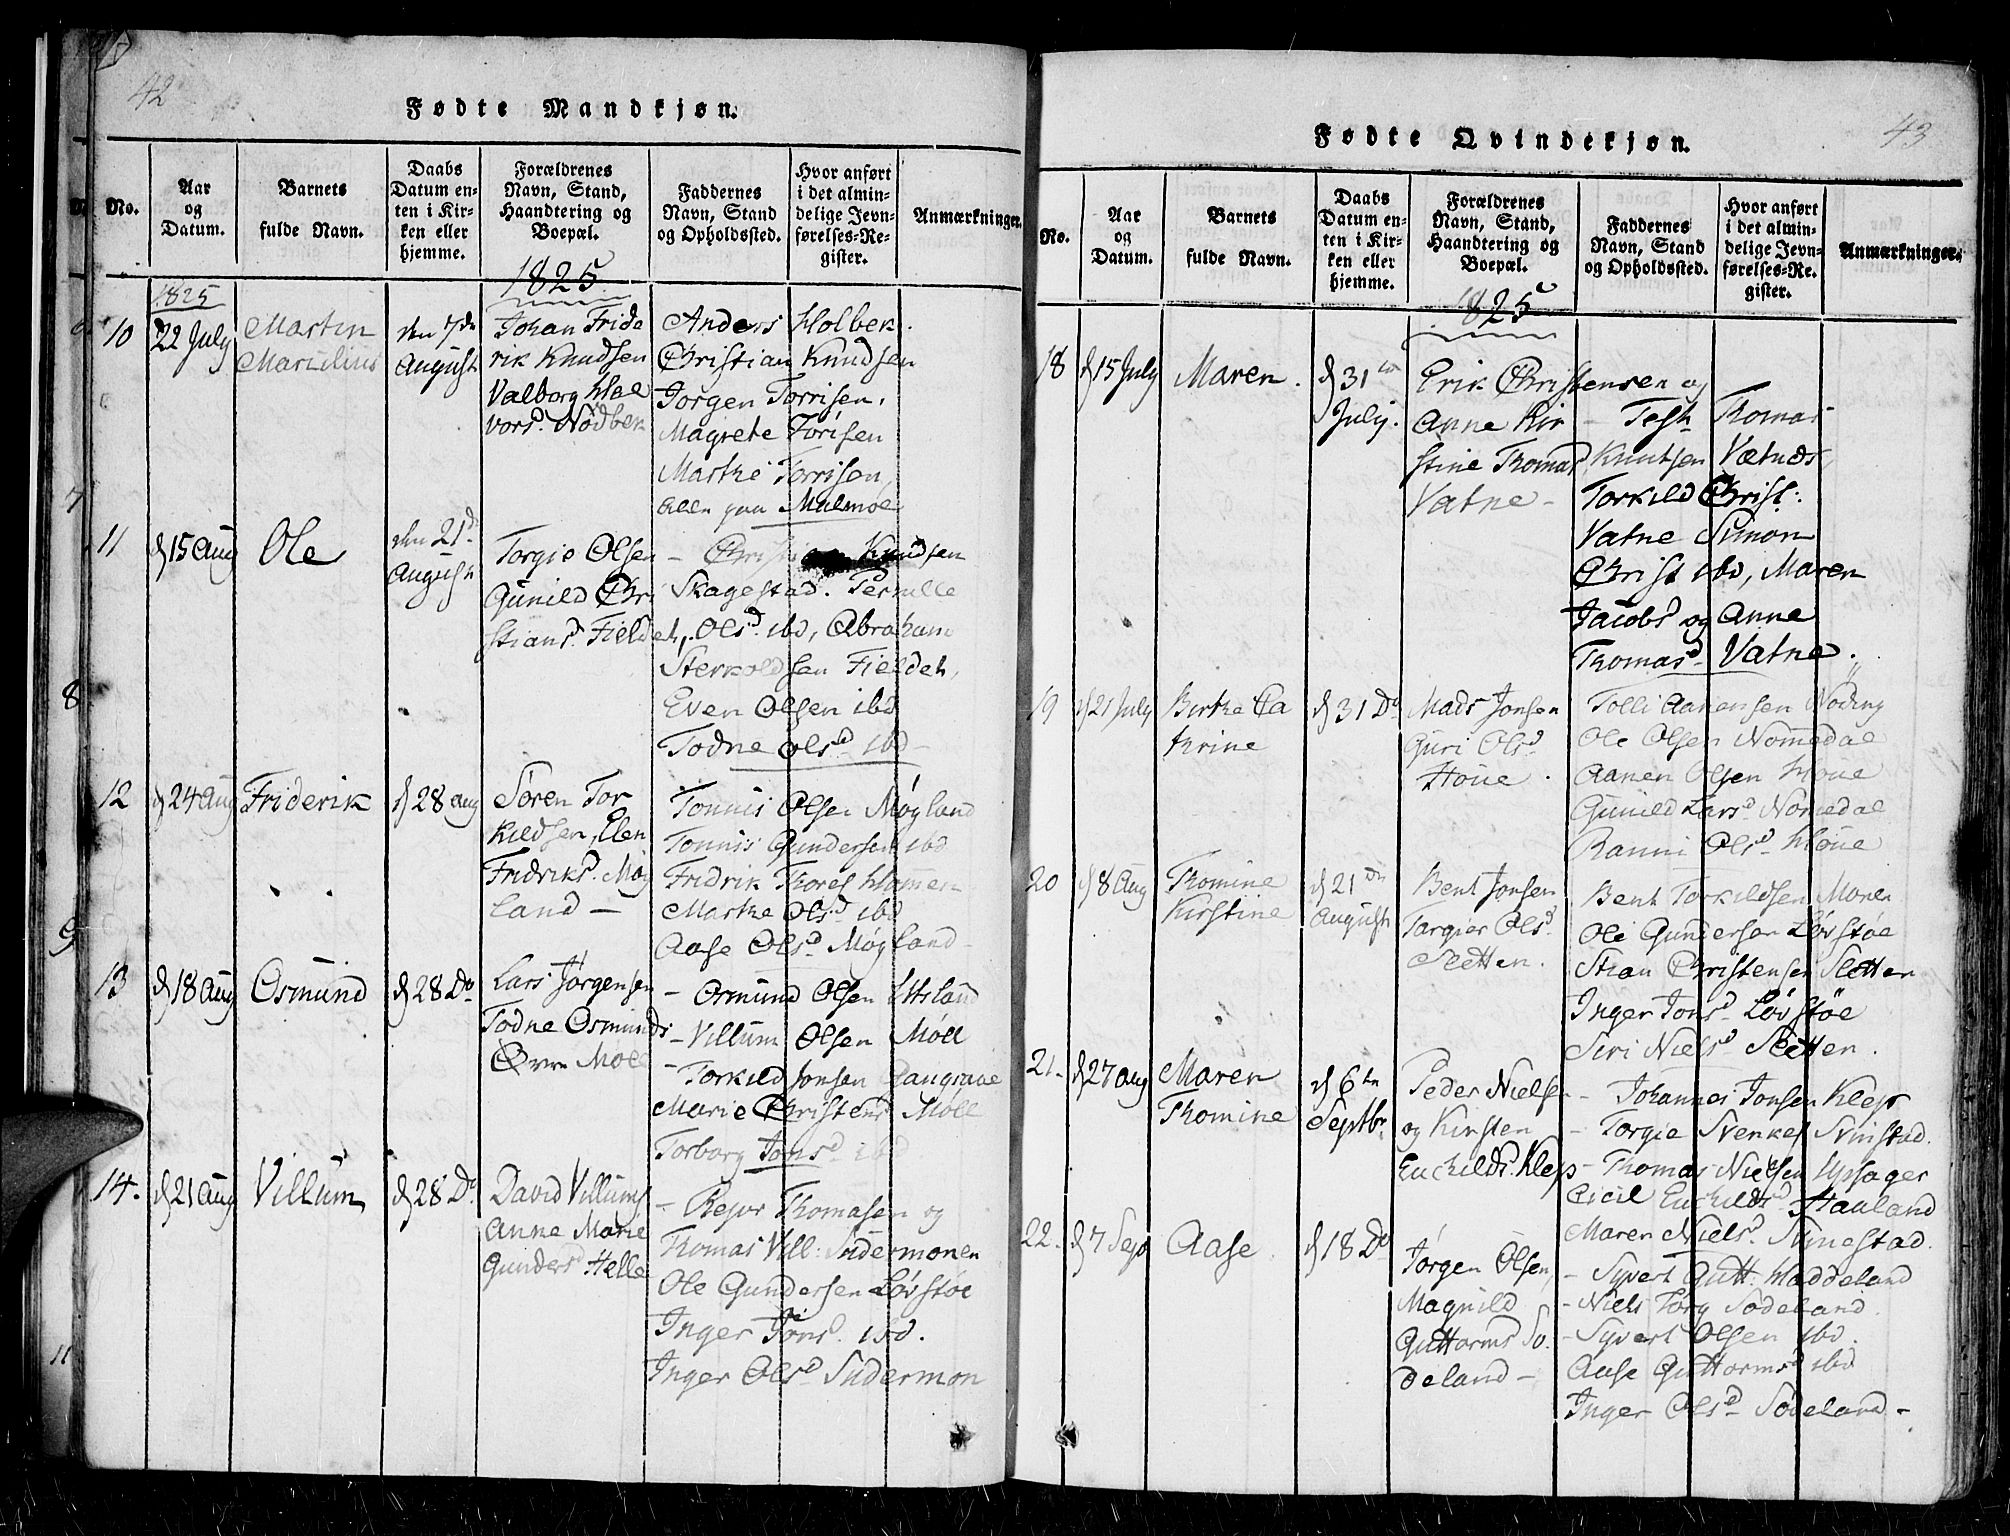 42
Fødte Mandkjøn.
No.
Aar
og
Datum.
Barnets
fulde Navn.
Daabs
Datum en-
ten i Kir-
ken eller
hjemme.
Forældrenes
Navn, Stand,
Haandtering og
Boepæl.
Faddernes
Navn, Stand
og Opholdssted.
Hvor anført
i det almin-
delige Jevn-
førelses-Re-
gister.
Anmærkninger.
1825
1825
10
22 July
Martin
Marselius
den 7de
August
Johan Fride
rik Knudsen
Valborg Hal
vors. Nødbek
Anders Holbek.
Christian Knudsen
Jorgen Torrisen,
Magrete Torisen
Marthe Torrisen,
alle paa Malmøe
11
d 15 Aug
Ole
den 21d
August
Torgie Olsen
Gunild Chri
stiansd. Fieldet,
- Knudsen
Skagestad. Pernille
Olsd. ibd, Abraham
Sterkoldsen Fieldet,
Even Olsen ibd
Todne Olsd ibd -
12
d 24 Aug
Friderik
d 28 Aug
Søren Tor
kildsen, Elen
Fridriksd. Møg
land -
Tonnis Olsen Møgland
Tonnis Gundersen ibd
Fridrik Thores Homen
Marthe Olsd ibd
Aase Olsd Møgland -
13
d 18 Aug
Osmund
d 28 Do
Lars Jørgensen
Todne Osmunds
Øvre Moll
- Osmund Olsen Udsland
- Villum Olsen Møll
- Torkild Jonsen
Marie Christens Møll
Torborg Jonsd ibd
14.
d 21 Aug
Villum
d 28 Do
David Villums
Anne Marie
Gundersd Helle
- Rejor Thomasen og
Thomas Vill: Sudermonen
Ole Gundersen Løvstøe
Inger Jonsd. ibd.
Inger Olsd Sudermon
43
Fødte Qvindekjøn.
No.
Aar
og
Datum.
Barnets
fulde Navn.
Daabs
Datum en-
ten i Kir-
ken eller
hjemme.
Forældrenes
Navn, Stand,
Haandtering og
Boepæl.
Faddernes
Navn, Stand
og Opholdssted.
Hvor anført
i det almin-
delige Jevn-
førelses-Re-
gister.
Anmærkninger.
1825
18
d 15 July
Maren.
d 31te
July.
Erik Christensen og
Anne Kir
stine Thomasd
Vatne -
- Test Thomas
Knutsen Vatnds
Torkild Christ:
Vatne Simon
Christ ibd, Maren
Jacobs og Anne
Thomasd Vatne.
19
d 21 July
Birthe Ca
trine
d 31 Do
Mads Jonsen
Guri Olsd
Houe.
Tolli Aanensen Noding
Ole Olsen Nomedal
Aanen Olsen Houe
Gunild Larsd Nomedal
Ranni Olsd Houe
20
d 8 Aug
Thomine
Kirstine
d 21de
August
Bent Jonsen
Targier Olsd.
Sletten.
Bent Torkildsen Monen
Ole Gundersen Løvstøe
Stian Christensen Sletten
Inger Jonsd Løvstøe
Siri Nielsd Sletten.
21.
d 27 Aug
Maren
Thomine
d 6te
Septbr
Peder Nielsen
og Kirsten
Euchildsd. Klep
- Johannes Jonsen Klep
- Torgie Svenkes Svinstad.
- Thomas Nielsen Upsager
Cicil Euchildsd Haaland
Maren Nielsd. Svinestad.
22.
d 7 Sep
Aase.
d 18 Do
Jørgen Olsen,
Magnild
Guttorms So
deland -
- Syvert Gutt. Haddeland
- Niels Jørg Sodeland.
- Syvert Olsen ibd.
Aase Guttormsd ibd
Inger Olsd Sødeland -
7
8
9
11